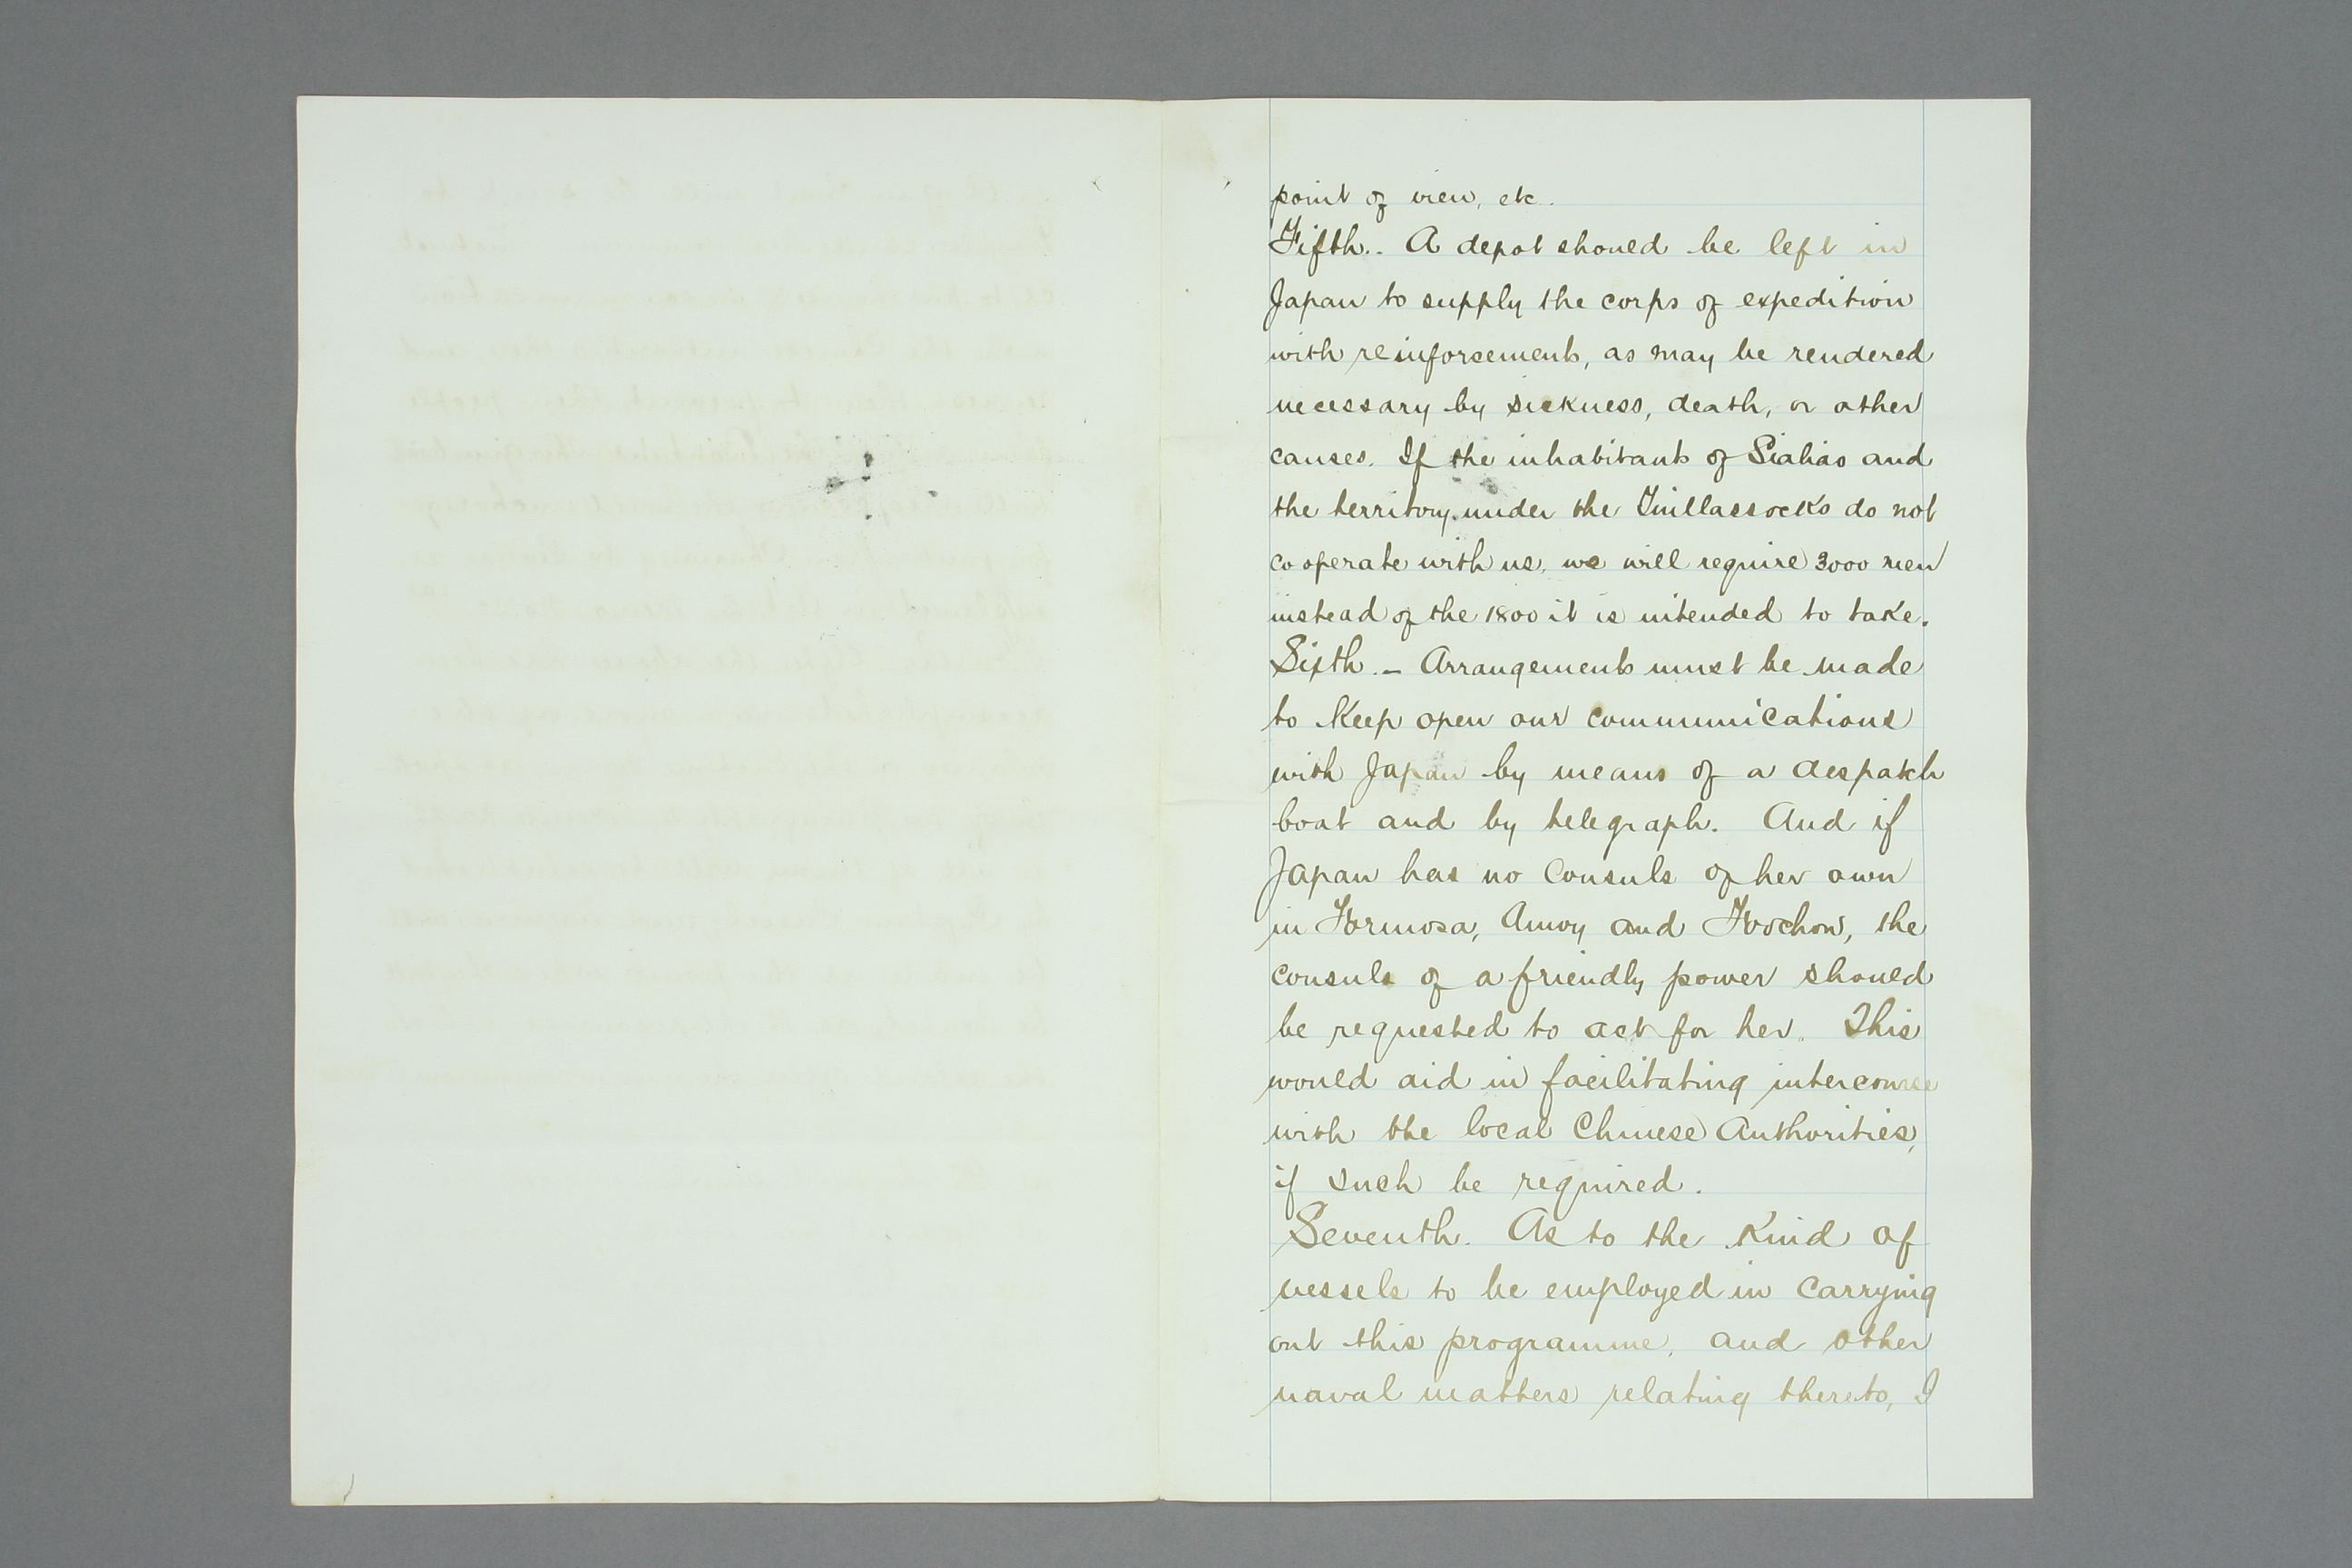 point of view, etc.
Fifth.. A depot should be left in
Japan to supply the corps of expedition
with reinforsements, as may be rendered
necessary by sickness, death, or other
causes. If the inhabitants of Sialiao and
the territory under the Tuillassocks do not
cooperate with us, we will require 3000 men
instead of the 1800 it is intended to take.
Sixth. – Arrangements must be made
to Keep open our communications
with Japan by means of a despatch
boat and by telegraph. And if
Japan has no Consuls of her own
in Formosa, Amoy and Foochow, the
consuls of a friendly power should
be requested to act for her. This
would aid in facilitating intercourse
with the local Chinese Authorities,
if such be required.
Seventh. As to the Kind of
vessels to be employed in carrying
out this programme, and other
naval matters relating thereto, I